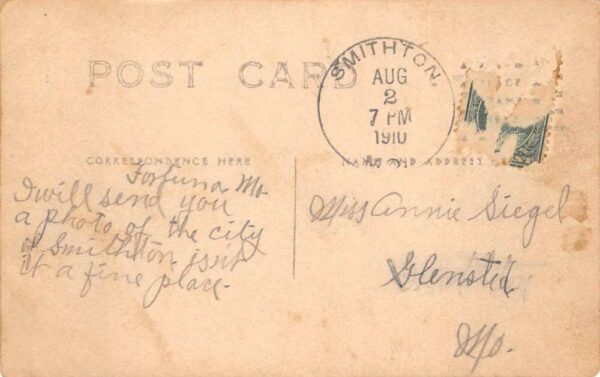 POST CARD
SMITHTON,
AUG
2
7 PM
1910
MO.
CORRESPONDENCE HERE
NAME AND ADDRESS
Fortuna Mo
I will send you
a photo of the city
of Smithton isn't
it a fine place.
Miss Annie Siegel
Glensted
Mo.